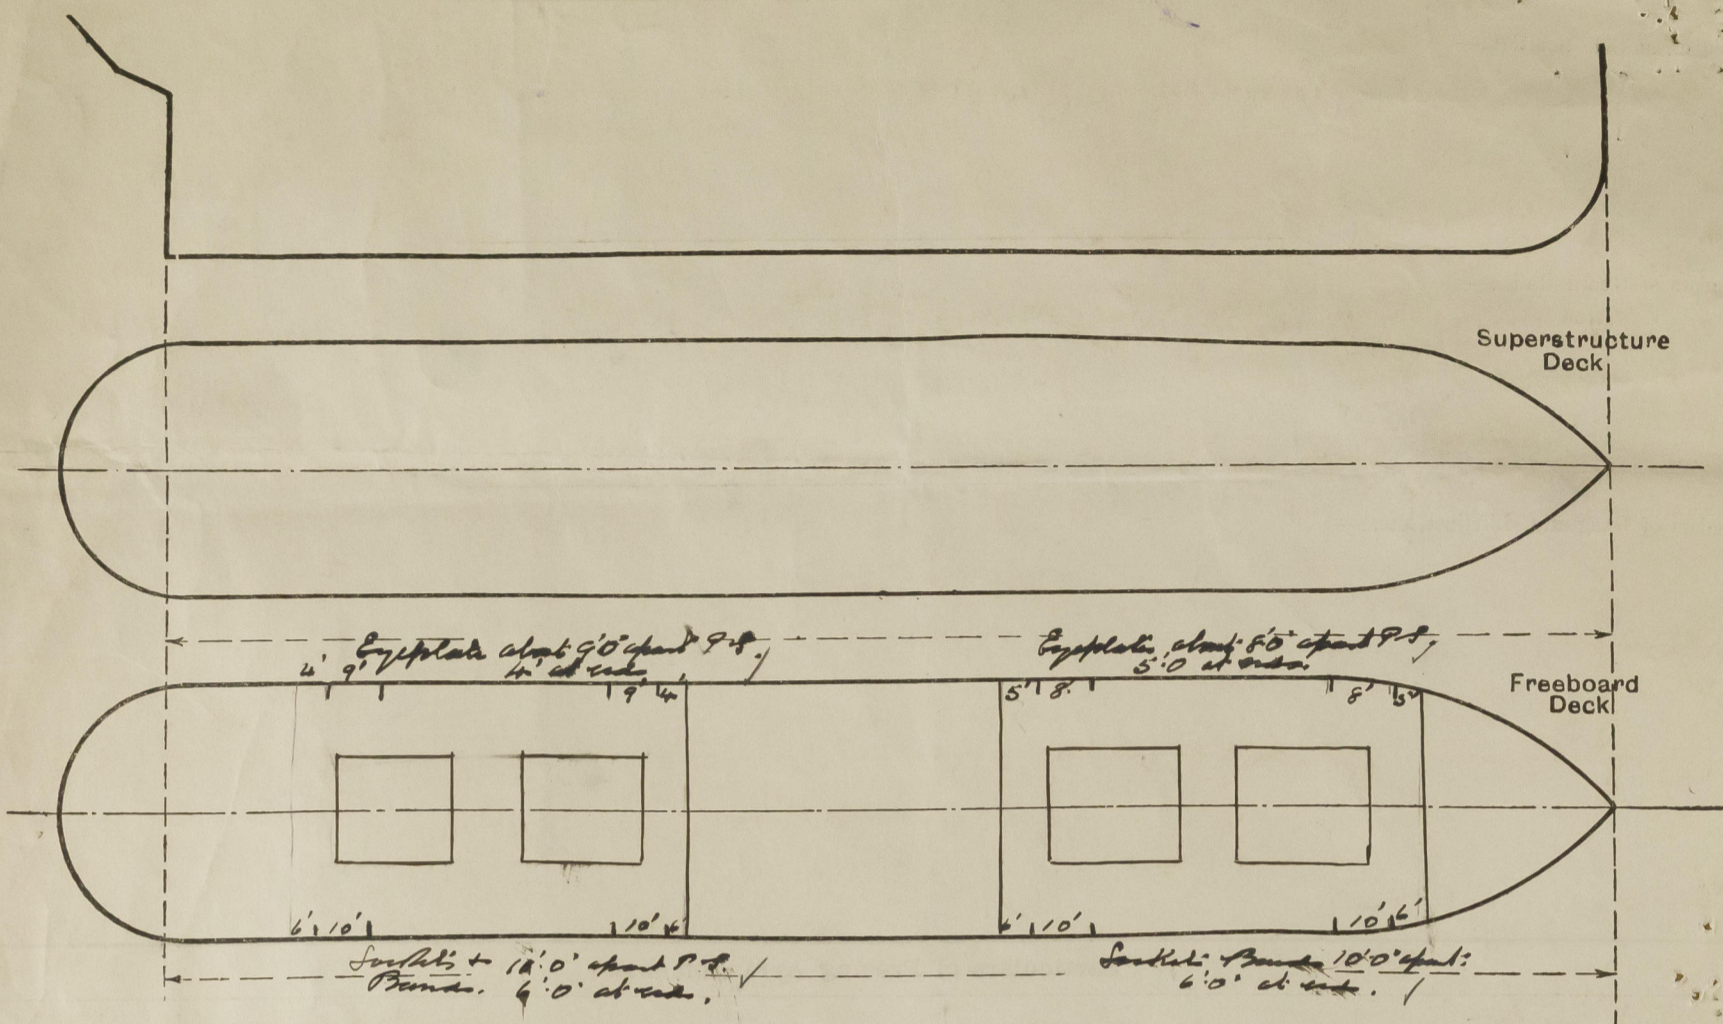 Superstructure
Deck
Eyeplates about 9'0" apart P.S.
4' at ends
Eyeplates about 8'0" apart P.S.
5'.0 at ends.
4' 9' 9' 4'
5' 8' 8' 5'
Freeboard
Deck
6' 10' 10' 6'
6' 10' 10' 6'
Sockets + 10'.0" apart P.S.
Bands. 6'.0" at ends.
Sockets Bands 10'0" apart.
6'.0" at ends.